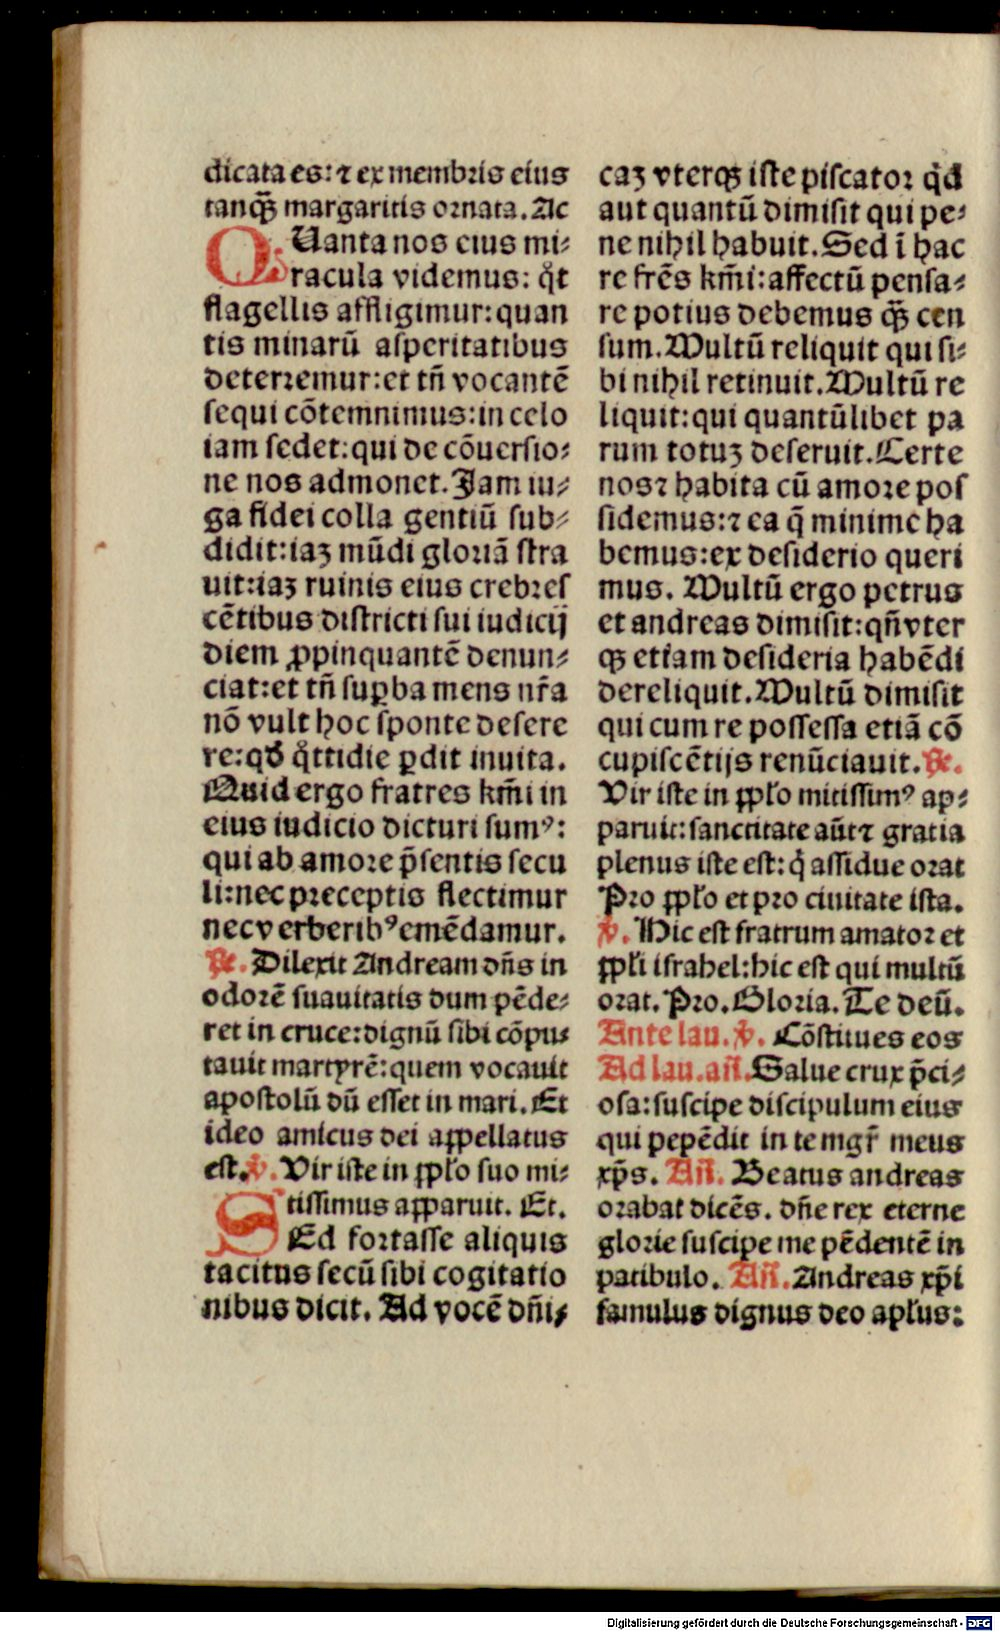 dicata es: ⁊ ex membris eius
tanq̃ꝫ margaritis ornata. Ac
QUanta nos eius mi⸗
racula videmus: qͦt
flagellis affligimur: quan
tis minarū asperitatibus
deterremur: et tñ vocantē
sequi cōtemnimus: in celo
iam sedet: qui de cōuersio⸗
ne nos admonet. Jam iu⸗
ga fidei colla gentiū sub⸗
didit: iaꝫ mūdi gloriā stra
uit: iaꝫ ruinis eius crebres
cētibus districti sui iudicij
diem ꝓpinquantē denun⸗
ciat: et tñ suꝑba mens nr̃a
nō vult hoc sponte desere
re: qđ qͦttidie ꝑdit inuita.
Quid ergo fratres km̃i in
eius iudicio dicturi sumꝰ:
qui ab amore p̃sentis secu
li: nec preceptis flectimur
nec verberibꝰ emēdamur.
℞. Dilexit Andream dñs in
odorē suauitatis dum pēde⸗
ret in cruce: dignū sibi cōpu⸗
tauit martyrē: quem vocauit
apostolū dū esset in mari. Et
ideo amicus dei appellatus
est. ℣. Vir iste in ppl̃o suo mi⸗
tissimus apparuit. Et.
SEd fortasse aliquis
tacitus secū sibi cogitatio
nibus dicit. Ad vocē dñi⸗
caꝫ vterqꝫ iste piscator qͥd
aut quantū dimisit qui pe⸗
ne nihil habuit. Sed ī hac
re frēs km̃i: affectū pensa⸗
re potius debemus q̃ꝫ cen
sum. Multū reliquit qui si⸗
bi nihil retinuit. Multū re
liquit: qui quantūlibet pa
rum totuꝫ deseruit. Certe
nos ⁊ habita cū amore pos
sidemus: ⁊ ea q̄ minime ha
bemus: ex desiderio queri
mus. Multū ergo petrus
et andreas dimisit: qñ vter
qꝫ etiam desideria habēdi
dereliquit. Multū dimisit
qui cum re possessa etiā cō
cupiscētijs renūciauit. ℞.
Vir iste in ppl̃o mitissimꝰ ap⸗
paruit: sanctitate aūt ⁊ gratia
plenus iste est: qͥ assidue orat
Pro ppl̃o et pro ciuitate ista.
℣. Hic est fratrum amator et
ppl̃i israhel: hic est qui multū
orat. Pro. Gloria. Te deū.
Ante lau. ℣. Cōstitues eos
Ad lau. añ. Salue crux p̃ci⸗
osa: suscipe discipulum eius
qui pepēdit in te mgr̃ meus
xp̃s. Añ. Beatus andreas
orabat dicēs. dñe rex eterne
glorie suscipe me pēdentē in
patibulo. Añ. Andreas xp̃i
famulus dignus deo apl̃us:
Digitalisierung gefördert durch die Deutsche Forschungsgemeinschaft - DFG